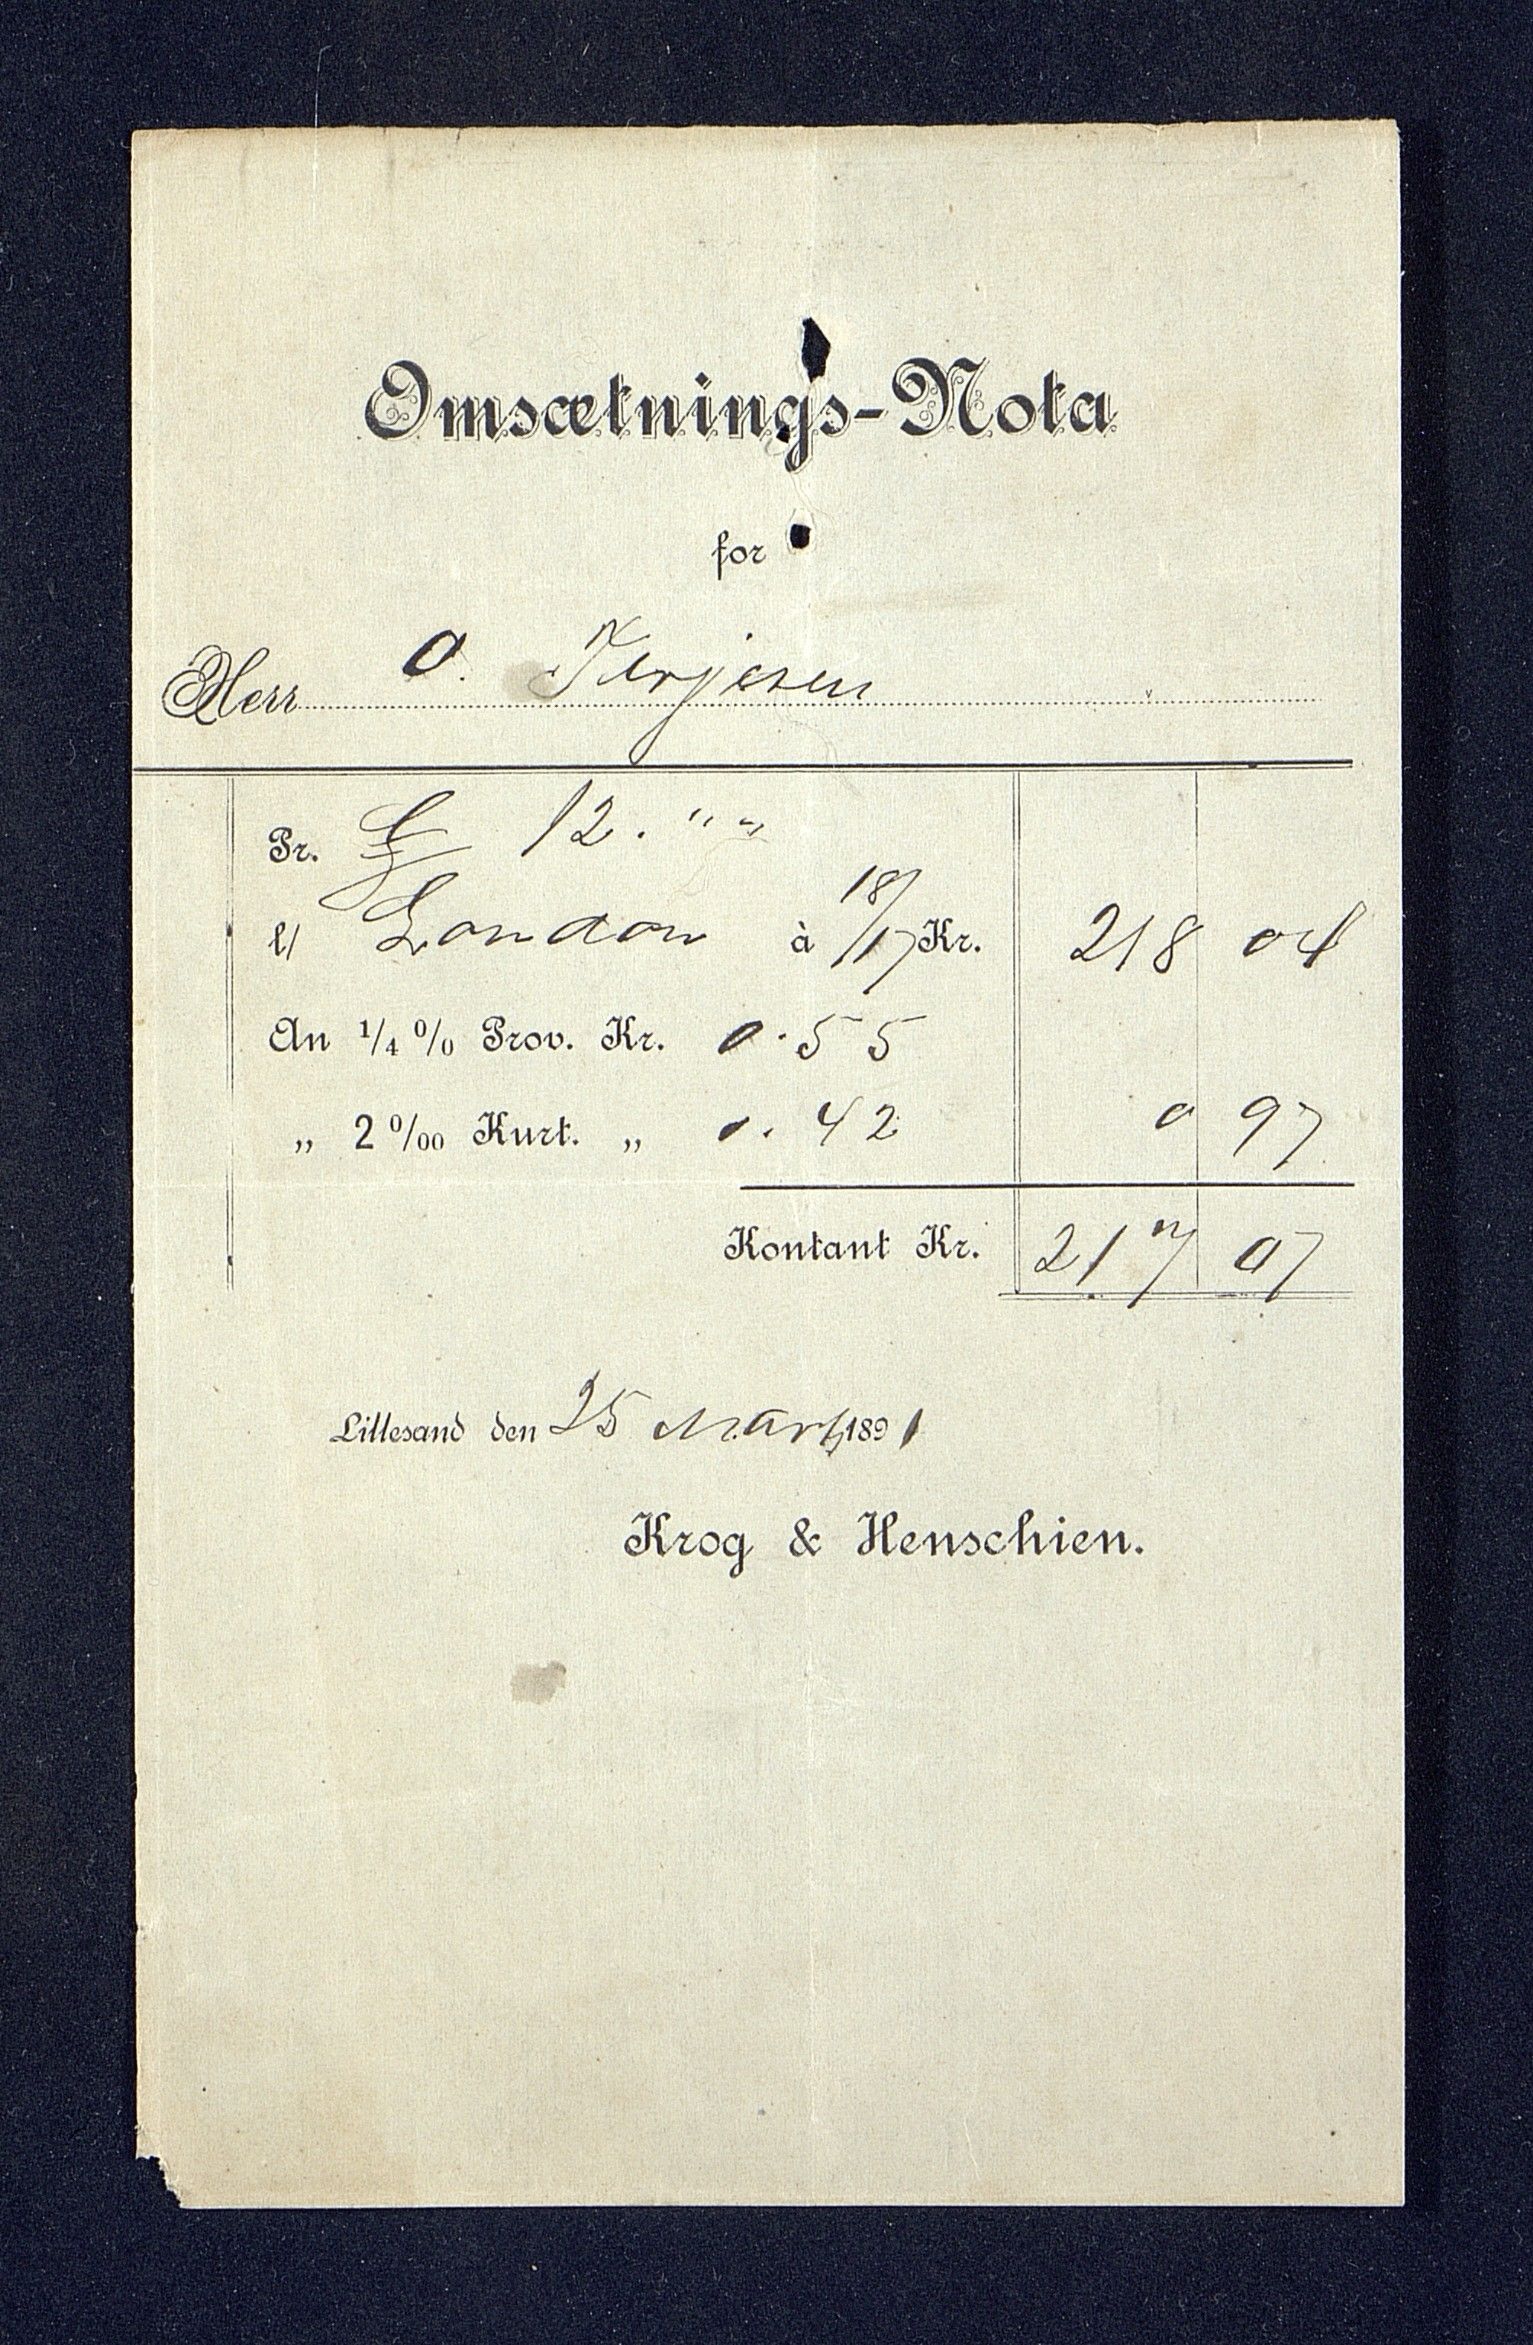 Omsætnings-Nota
for
Herr O. Terjesen
Pr. £ 12. " "
l/ London à 18/17 Kr. 218 04
An 1/4 % Prov. Kr. 0.55
„ 2 ‰ Kurt. „ 0.42 0 97
Kontant Kr. 217 07
Lillesand den 25 Marts 1891
Krog & Henschien.